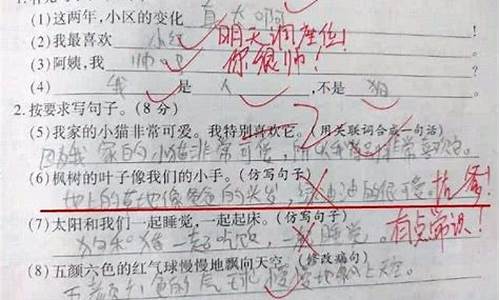 (1)这两年,小区的变化 真大啊
(2)我最喜欢 小红 明天调座位!
(3)阿姨,我 帅吧 你很帅!
(4) 我 是 人 ,不是 狗
2. 按要求写句子。(8 分)
(5)我家的小猫非常可爱。我特别喜欢它。(用关联词合成一句话)
因为我家的小猫非常可爱,所以我 非常喜欢它。
(6)枫树的叶子像我们的小手。(仿写句子)
地上的草地像爸爸的头发,绿油油的很可爱。
(7)太阳和我们一起睡觉,一起起床。(仿写句子)
狗和猪一起吃饭,一 睡觉。 有点常识!
(8)五颜六色的红气球慢慢地飘向天空。(修改病句)
五颜六色的气球慢慢地飘上天空。